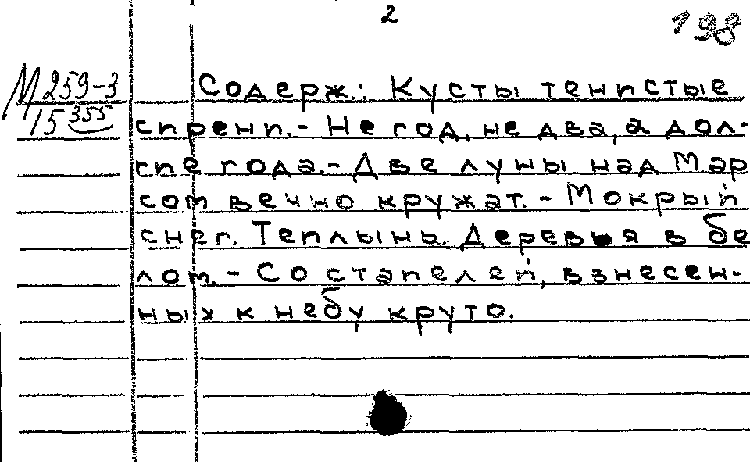 2
198
М 259-3
15 355
Содерж.: Кусты тенистые
сирени.- Не год, не два, а дол-
гие года.- Две луны над Мар
сом вечно кружат.- Мокрый
снег. Теплынь. Деревья в бе
лом.- Со стапелей, взнесен-
ных к небу круто.